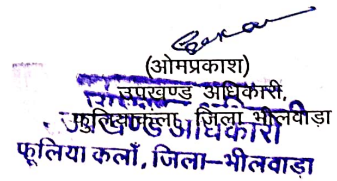 (ओमप्रकाश)
उपखण्ड अधिकारी,
फूलियाकला, जिला भीलवाड़ा
उपखण्ड अधिकारी
फूलिया कलाँ, जिला–भीलवाड़ा